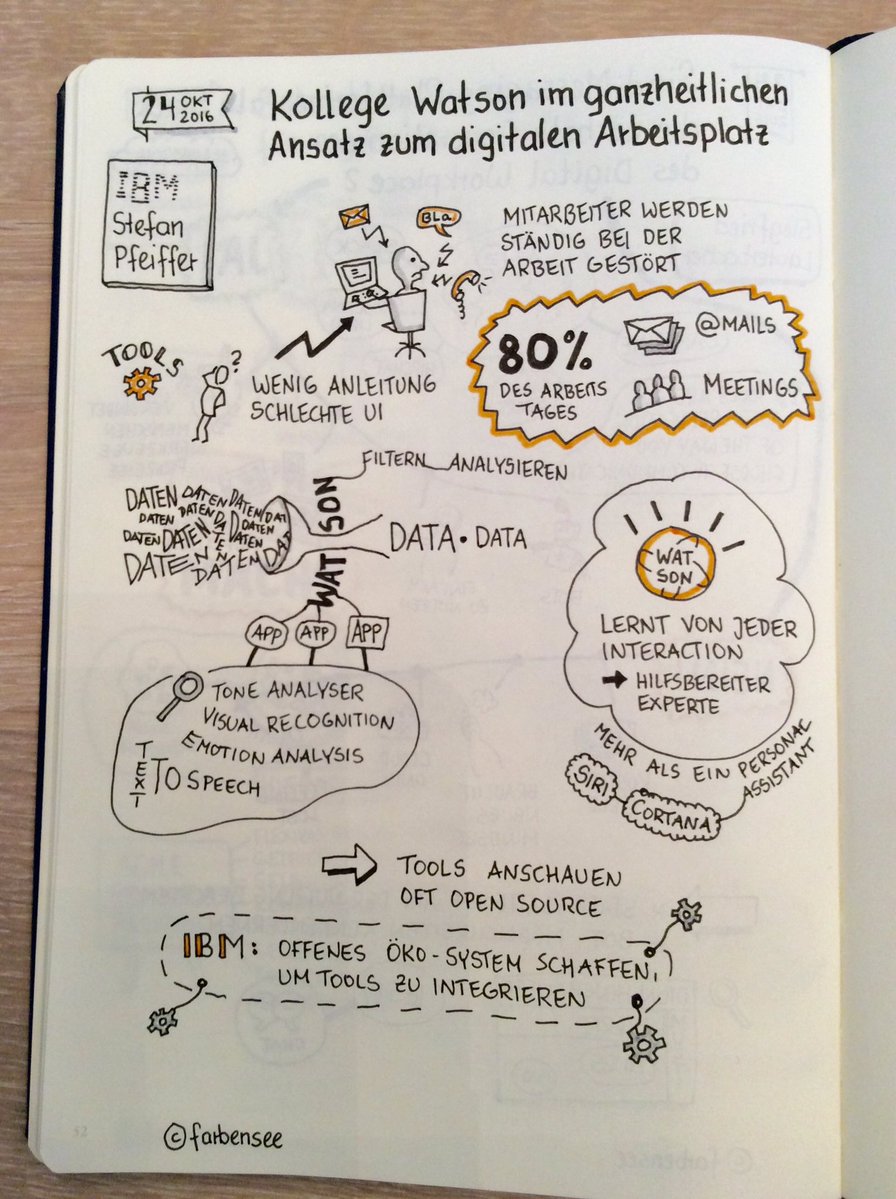 24 OKT
2016
Kollege Watson im ganzheitlichen
Ansatz zum digitalen Arbeitsplatz
IBM
Stefan
Pfeiffer
BLa
MITARBEITER WERDEN
STÄNDIG BEI DER
ARBEIT GESTÖRT
TOOLS
?
WENIG ANLEITUNG
SCHLECHTE UI
80%
DES ARBEITS
TAGES
@MAILS
MEETINGS
FILTERN ANALYSIEREN
WATSON
DATEN DATEN DATEN DAT
DATEN DATEN DATEN DATEN
DATEN DATEN DATEN
DATEN DATEN DAT
DATA • DATA
APP APP APP
TONE ANALYSER
VISUAL RECOGNITION
EMOTION ANALYSIS
TEXT TO SPEECH
WAT
SON
LERNT VON JEDER
INTERACTION
→ HILFSBEREITER
EXPERTE
MEHR ALS EIN PERSONAL
ASSISTANT
SIRI
CORTANA
TOOLS ANSCHAUEN
OFT OPEN SOURCE
IBM: OFFENES ÖKO-SYSTEM SCHAFFEN,
UM TOOLS ZU INTEGRIEREN
52
© farbensee